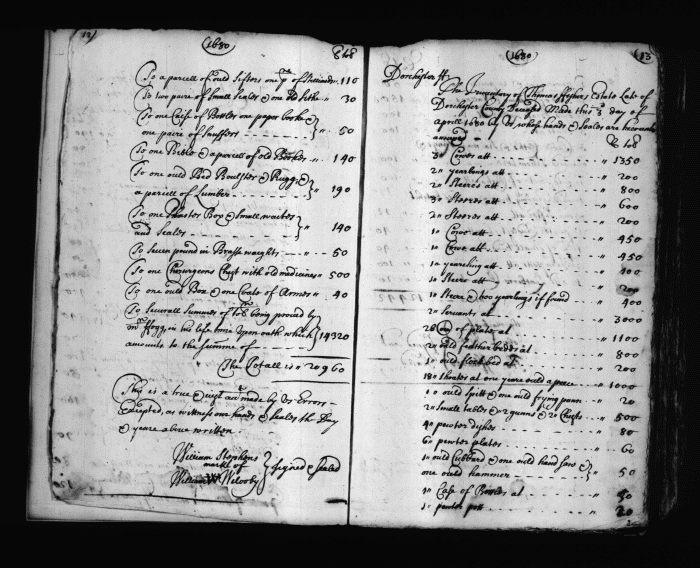 12
(1680)
lb tob
To a parcell of ould Sissors one pr of Stilliards 110
To two paire of Small Scales & one old Sithe " 30
To one Case of Bottles one paper booke &
one paire of Snuffers } " 50
To one Bible & a parcell of old Bookes " 140
To one ould Bed Boulster & Rugg &
a parcell of Lumber } " 190
To one Plaster Box & Small waites
and Scales } " 140
To Seven pound in Brasse weights " 50
To one Chirurgeons Chest with old medicines " 500
To one ould Box & one Coate of Armes " 40
To Severall Summes of tob being proved by
mr in his life time Upon oath which
amounts to the summe of } 14320
The Totall is " 20960
This is a true made by Us Errors
Excepted, as wittness our hands & Seales the Day
& yeare above written
William Stephens
marke of
William W Willoby
} Signed & Sealed
(1680)
(13
Dorchester ss
The Inventory of Thomas Estate Late of
Dorchester County Deceased Made this 3 day of
aprill 1680 by Us, whose hands & Seales are hereunto
annexed
lb tob
3 Cowes att " 1350
2 yearlings att " 200
2 Steeres att " 800
3 Steeres att " 600
2 Steeres att " 200
1 Cowe att " 450
1 Cowe att " 450
1 yearling att " 100
1 Steere att " 200
1 Steere & too yearlings if found " 400
2 Servants at " 3000
of plate at " 1100
2 ould feather beds at " 800
1 ould flock bed at " 200
18 shoates at one yeare ould a peece " 1000
1 ould Spitt & one ould frying pann " 20
2 Small tables & 2 gunns & 2 Chests " 500
4 pewter dishes " 80
6 pewter plates " 60
1 ould Cubbard & one ould hand saw &
one ould hammer } " 50
1 Case of at " 50
1 pewter pott " 20